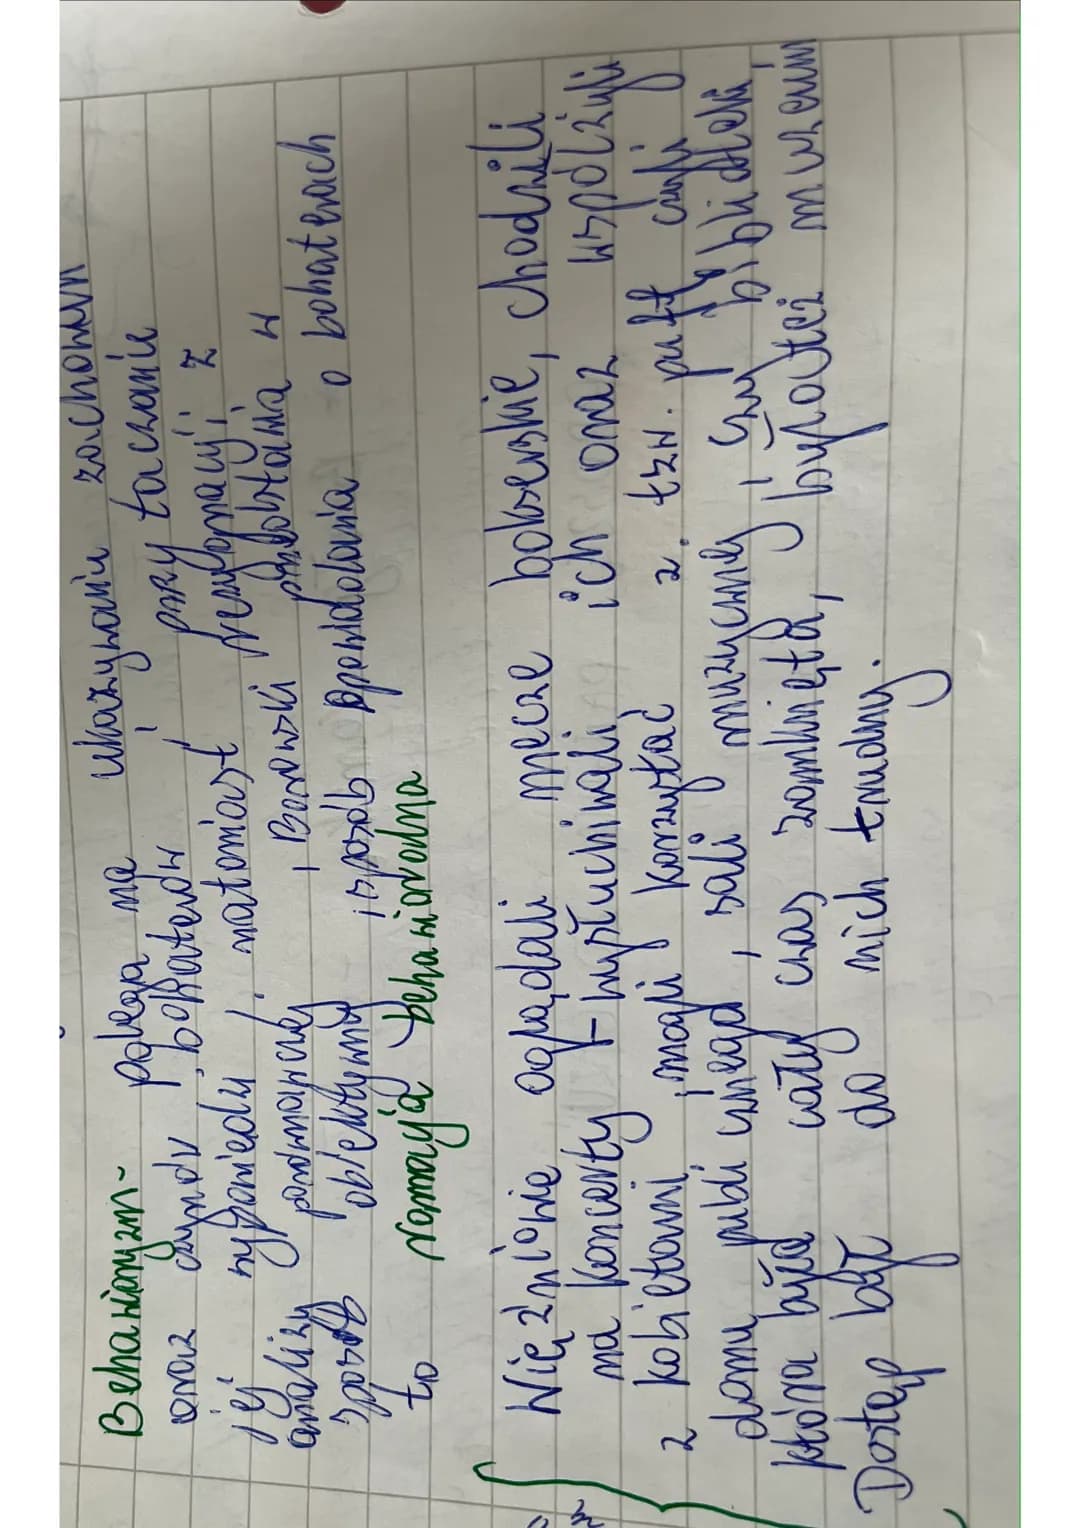 Behawioryzm - polega na ukazywaniu zachowań
oraz czynów bohaterów i przy taczanie
jej wypowiedzi, natomiast rezygnacji z
analizy poznawczej, Borowski przedstawia w
sposób obiektywny i sposób opowiadania o bohaterach
to narracja behawioralna
Więźniowie oglądali mecze bokserskie, chodzili
na koncerty i wysłuchiwali ich oraz współżyli
z kobietami, mogli korzystać z. tzw. puff czyli
domu publicznego, sali muzycznej i czy biblioteki
która była cały czas zamknięta, było też muzeum
Dostęp był do nich trudny.